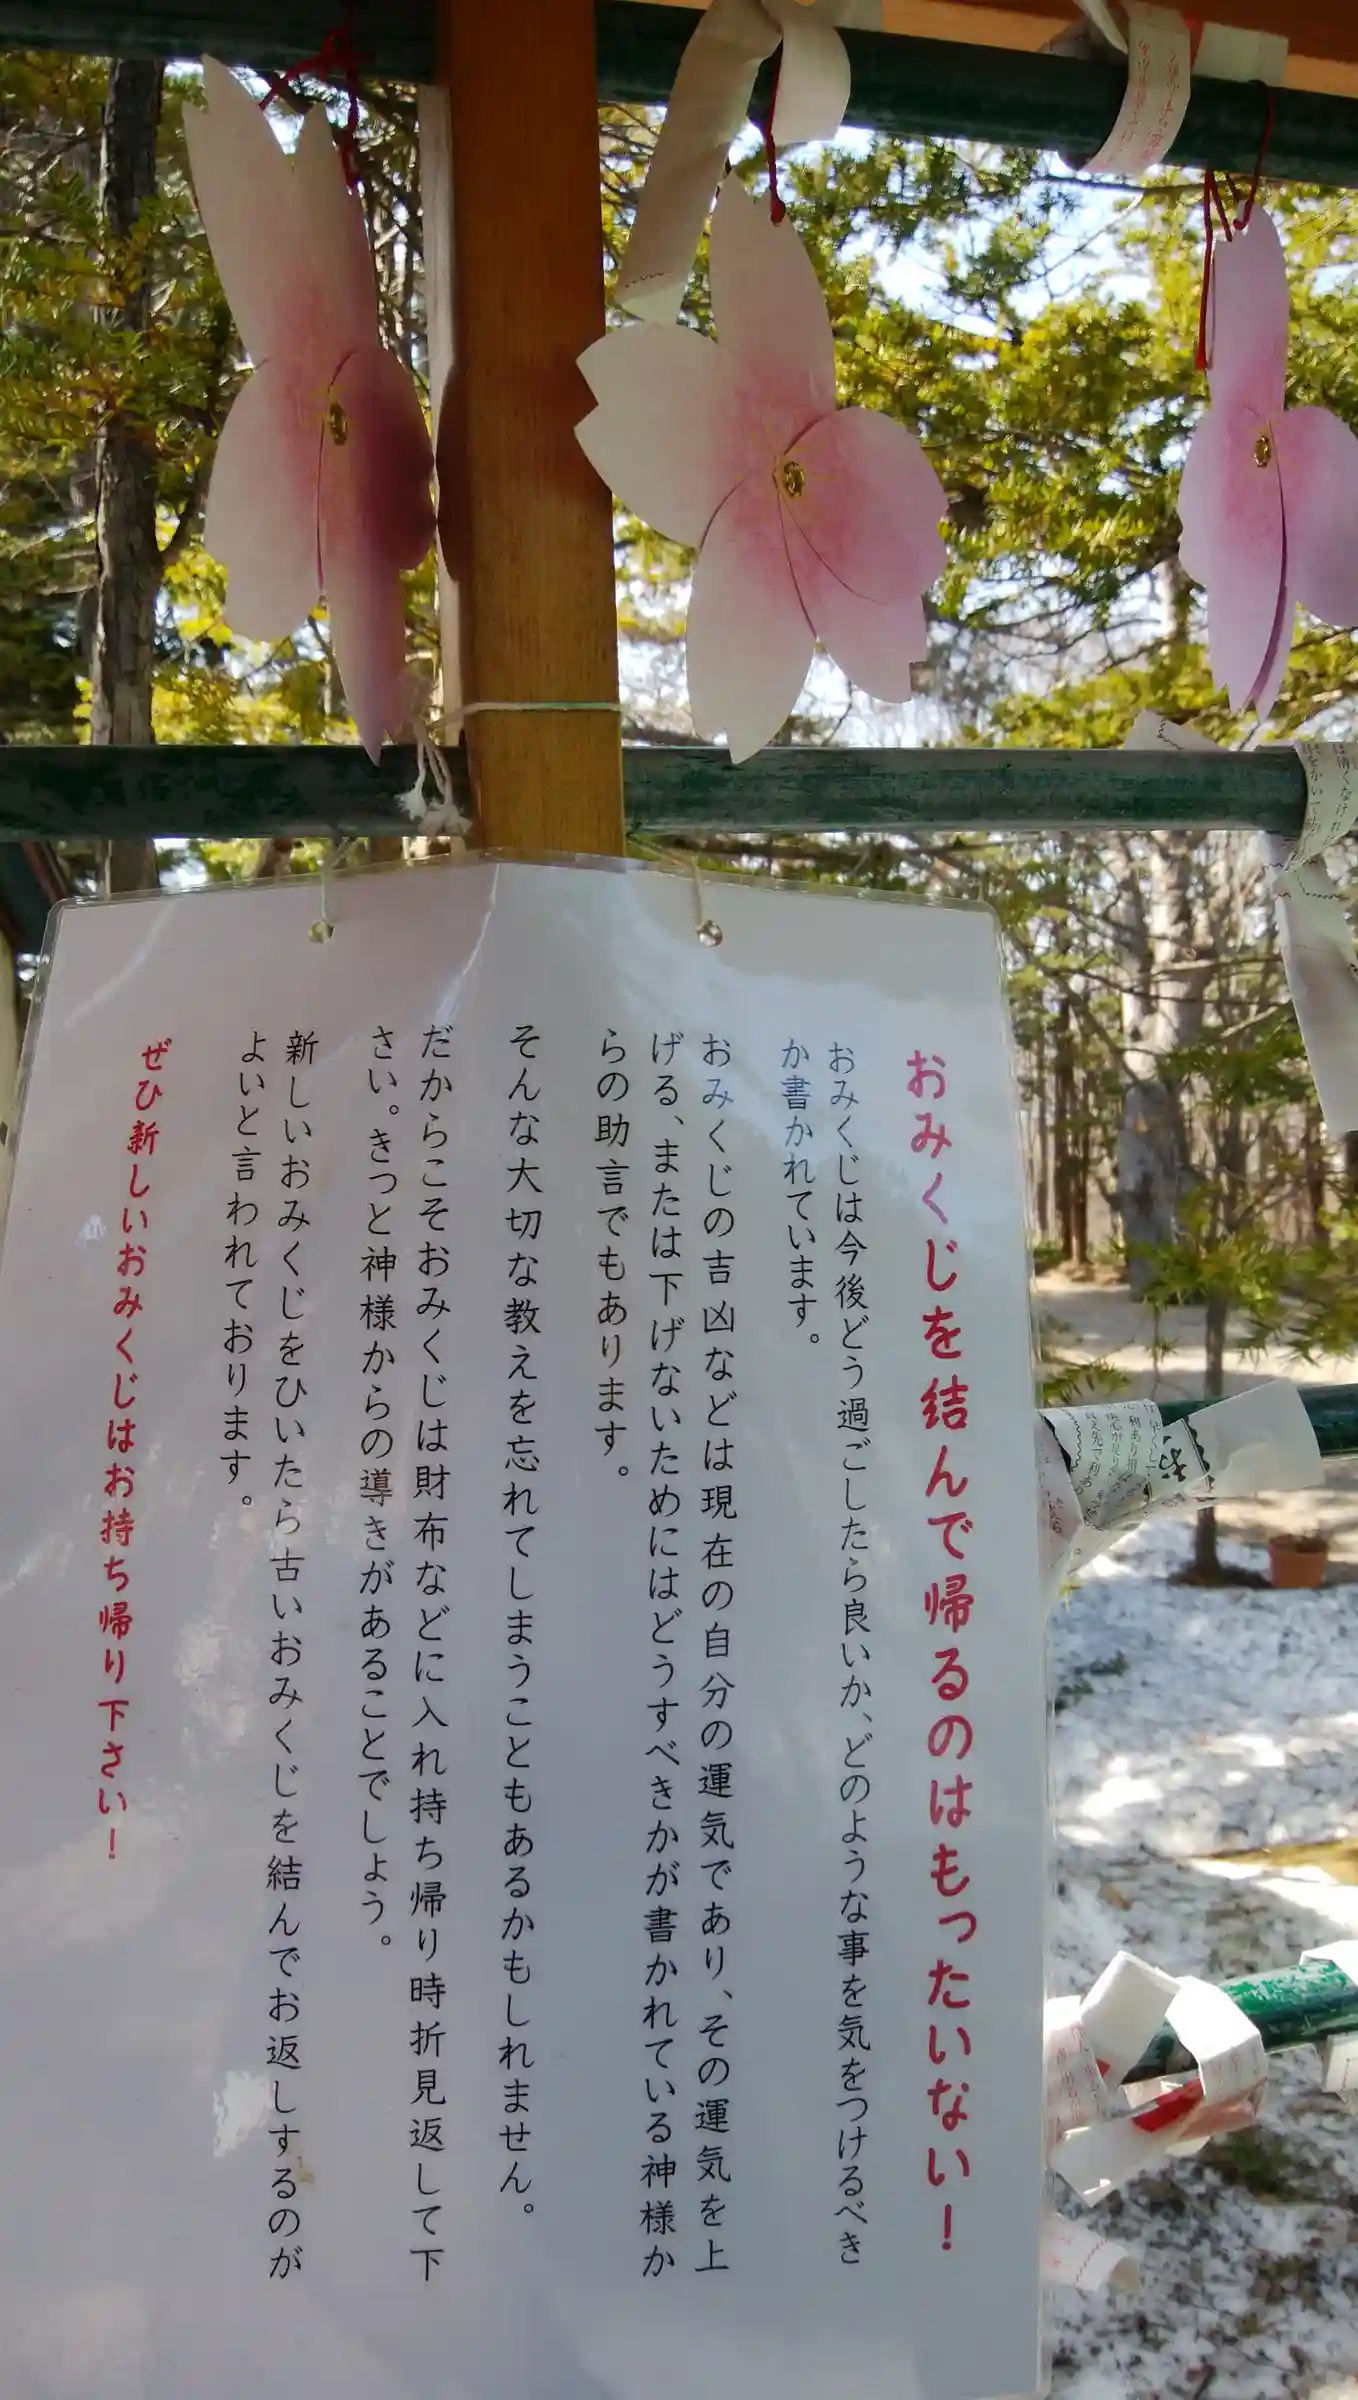 おみくじを結んで帰るのはもったいない！
おみくじは今後どう過ごしたら良いか、どのような事を気をつけるべき
か書かれています。
おみくじの吉凶などは現在の自分の運気であり、その運気を上
げる、または下げないためにはどうすべきかが書かれている神様か
らの助言でもあります。
そんな大切な教えを忘れてしまうこともあるかもしれません。
だからこそおみくじは財布などに入れ持ち帰り時折見返して下
さい。きっと神様からの導きがあることでしょう。
新しいおみくじをひいたら古いおみくじを結んでお返しするのが
よいと言われております。
ぜひ新しいおみくじはお持ち帰り下さい！